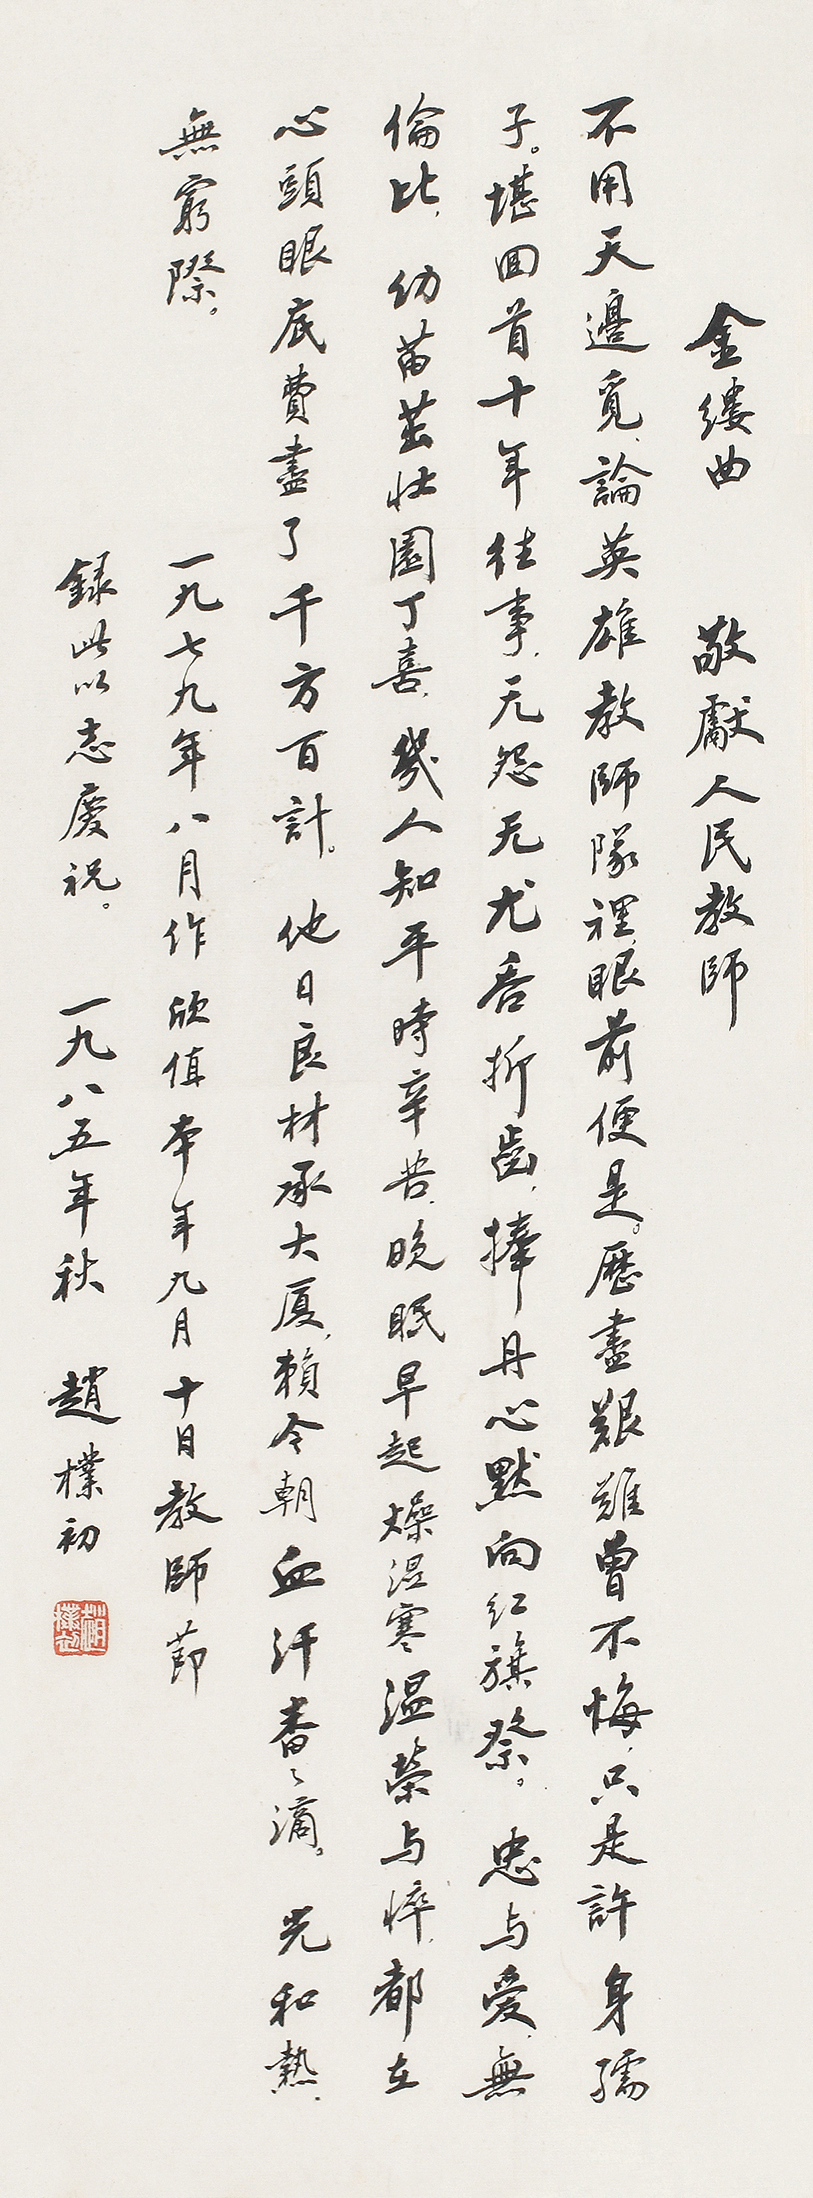 金缕曲 敬獻人民教師
不用天邊覓，論英雄教師隊裡，眼前便是。歷盡艱難曾不悔，只是許身孺
子。堪回首十年往事，无怨无尤吞折齒，捧丹心默向红旗祭。忠与爱，無
倫比。幼苗茁壮園丁喜，幾人知平時辛苦，晚眠早起。燥湿寒温荣与悴，都在
心頭眼底，費盡了千方百計。他日良材承大厦，賴今朝血汗番〻滴。光和熱，
無窮際。
一九七九年八月作 欣值本年九月十日教師節
録此以志慶祝。 一九八五年秋 趙樸初
趙樸初